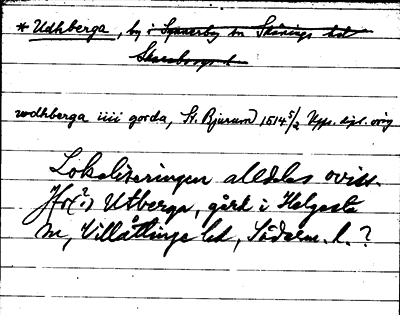 * Udhberga, by i Synnerby sn Skånings hd
Skaraborgs l.
wdhberga iiii gorda, St. Bjurum 1514 5/2 Upps. dipl. orig
Lokaliseringen alldeles oviss.
Jfr(?) Utberga, gård i Helgesta
sn, Villåttinge hd, Söderm. l. ?